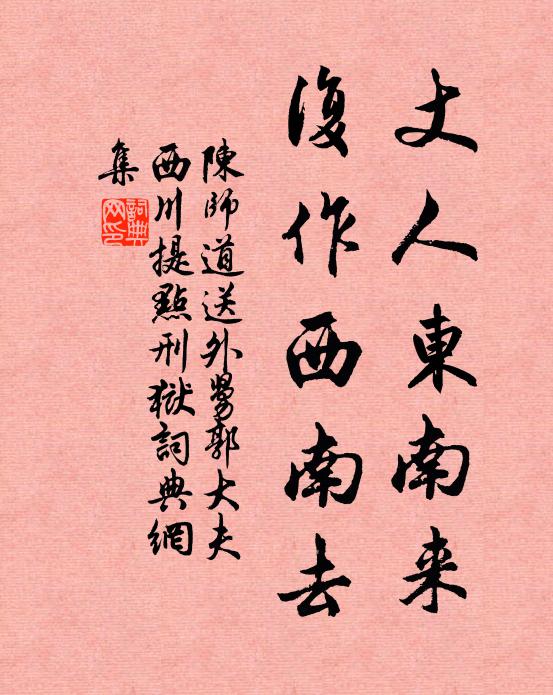 丈人東南来
復作西南去
陳師道送外舅郭大夫
西川提點刑獄詞典網
集
詞典
网印